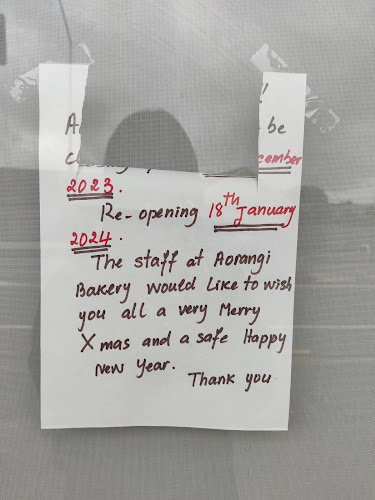 be
2023.
Re-opening 18th January
2024.
The staff at Aorangi
Bakery would Like to wish
you all a very Merry
Xmas and a safe Happy
New Year.
Thank you